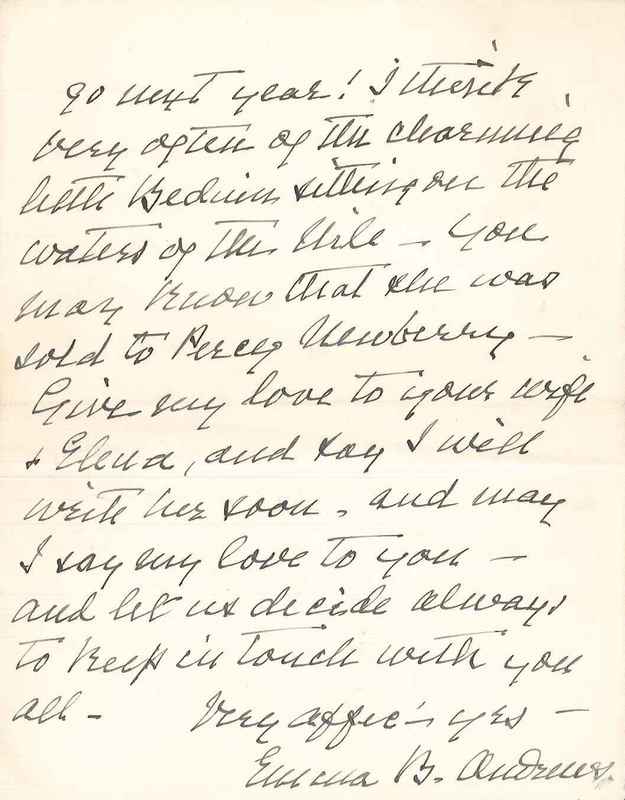 go next year! I think
very often of the charming
little Beduin sitting on the
waters of the Nile — You
may know that she was
sold to Percy Newberry —
Give my love to your wife
& Elena, and say I will
write her soon - and may
I say my love to you —
and let us decide always
to keep in touch with you
all - Very affec'ly yrs —
Emma B. Andrews.